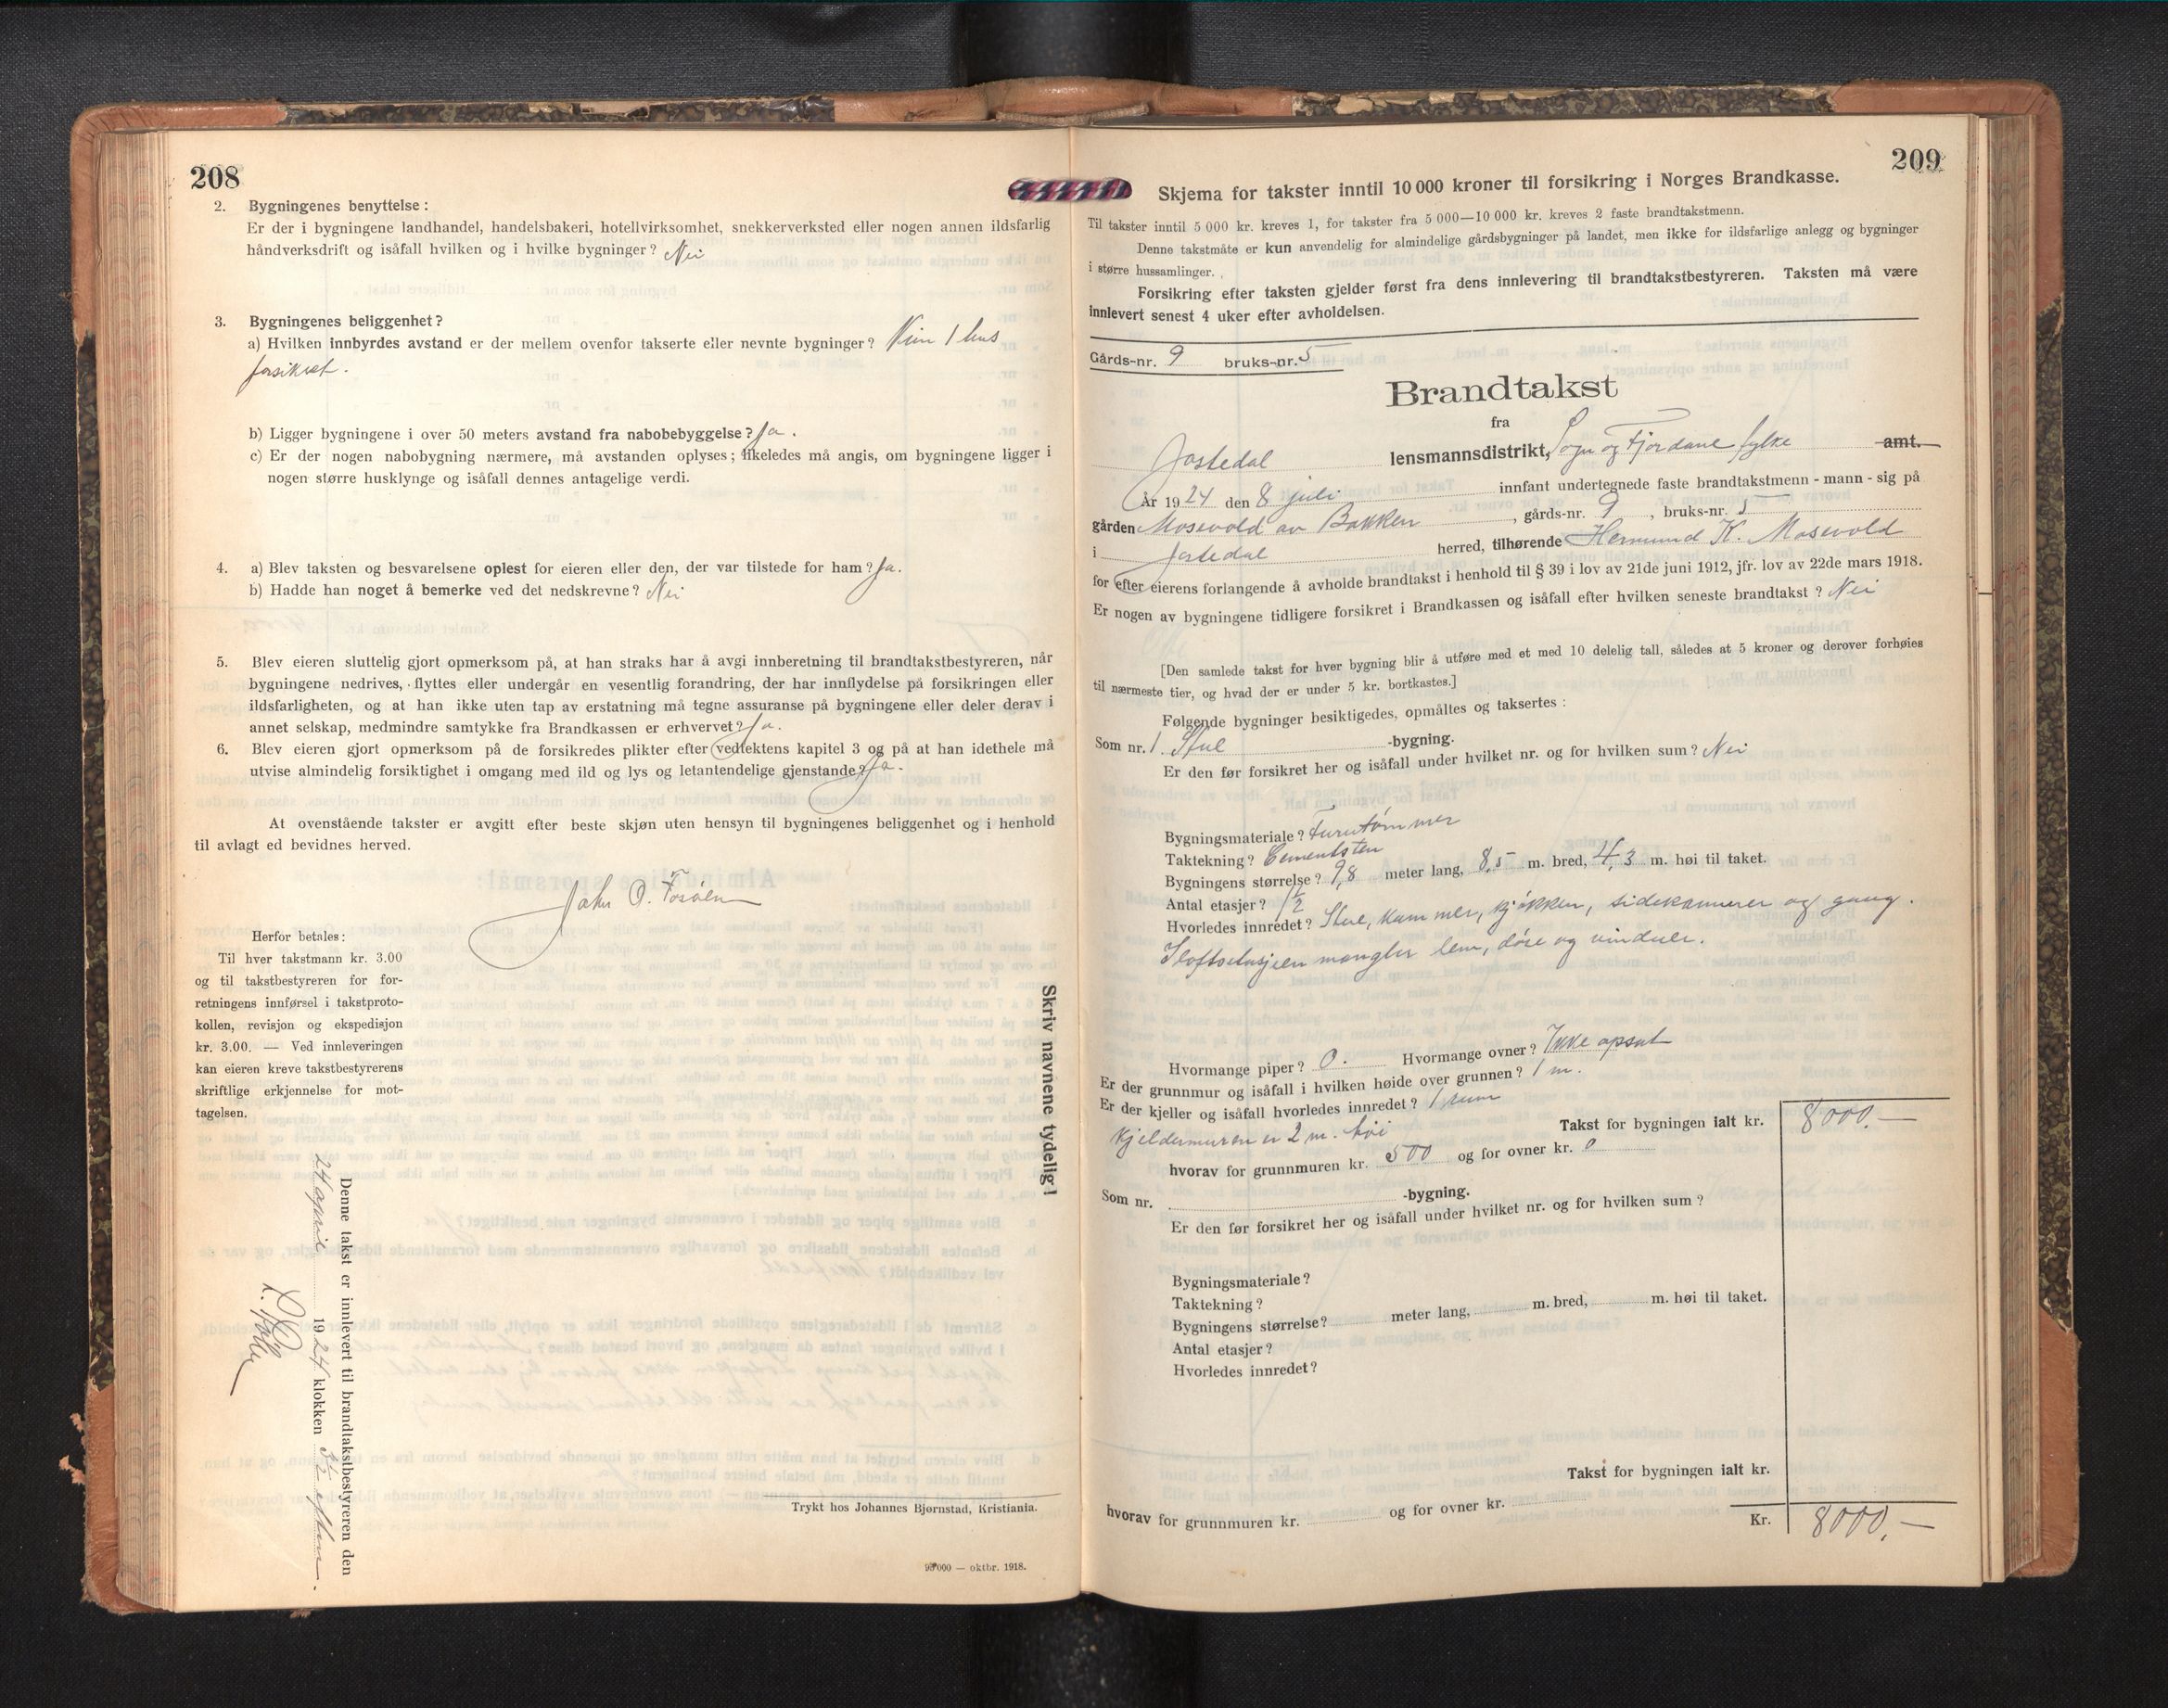 208
2. Bygningenes benyttelse:
Er der i bygningene landhandel, handelsbakeri, hotellvirksomhet, snekkerverksted eller nogen annen ildsfarlig
håndverksdrift og isåfall hvilken og i hvilke bygninger? Nei
3. Bygningenes beliggenhet?
a) Hvilken innbyrdes avstand er der mellem ovenfor takserte eller nevnte bygninger? Kun 1 hus
forsikret.
b) Ligger bygningene i over 50 meters avstand fra nabobebyggelse? Ja.
c) Er der nogen nabobygning nærmere, må avstanden oplyses; likeledes må angis, om bygningene ligger i
nogen større husklynge og isåfall dennes antagelige verdi.
4. a) Blev taksten og besvarelsene oplest for eieren eller den, der var tilstede for ham? Ja.
b) Hadde han noget å bemerke ved det nedskrevne? Nei
5. Blev eieren sluttelig gjort opmerksom på, at han straks har å avgi innberetning til brandtakstbestyreren, når
bygningene nedrives, flyttes eller undergår en vesentlig forandring, der har innflydelse på forsikringen eller
ildsfarligheten, og at han ikke uten tap av erstatning må tegne assuranse på bygningene eller deler derav i
annet selskap, medmindre samtykke fra Brandkassen er erhvervet? Ja.
6. Blev eieren gjort opmerksom på de forsikredes plikter efter vedtektens kapitel 3 og på at han idethele må
utvise almindelig forsiktighet i omgang med ild og lys og letantendelige gjenstande? Ja.
At ovenstående takster er avgitt efter beste skjøn uten hensyn til bygningenes beliggenhet og i henhold
til avlagt ed bevidnes herved.
John O. Fosøen
Herfor betales:
Til hver takstmann kr. 3.00
og til takstbestyreren for for-
retningens innførsel i takstproto-
kollen, revisjon og ekspedisjon
kr. 3.00. — Ved innleveringen
kan eieren kreve takstbestyrerens
skriftlige erkjennelse for mot-
tagelsen.
Skriv navnene tydelig!
Denne takst er innlevert til brandtakstbestyreren den
24 april 1924 klokken 3½ efterm.
Trykt hos Johannes Bjørnstad, Kristiania.
000 — oktbr. 1918.
209
Skjema for takster inntil 10 000 kroner til forsikring i Norges Brandkasse.
Til takster inntil 5 000 kr. kreves 1, for takster fra 5 000—10 000 kr. kreves 2 faste brandtakstmenn.
Denne takstmåte er kun anvendelig for almindelige gårdsbygninger på landet, men ikke for ildsfarlige anlegg og bygninger
i større hussamlinger.
Forsikring efter taksten gjelder først fra dens innlevering til brandtakstbestyreren. Taksten må være
innlevert senest 4 uker efter avholdelsen.
Gårds-nr. 9 bruks-nr. 5
Brandtakst
fra
Jostedal lensmannsdistrikt, Sogn og Fjordane fylke amt.
År 1924 den 8 juli innfant undertegnede faste brandtakstmenn - mann - sig på
gården Mosevold av Bakken, gårds-nr. 9, bruks-nr. 5
i Jostedal herred, tilhørende Hermund K. Mosevold
for efter eierens forlangende å avholde brandtakst i henhold til § 39 i lov av 21de juni 1912, jfr. lov av 22de mars 1918.
Er nogen av bygningene tidligere forsikret i Brandkassen og isåfall efter hvilken seneste brandtakst? Nei
[Den samlede takst for hver bygning blir å utføre med et med 10 delelig tall, således at 5 kroner og derover forhøies
til nærmeste tier, og hvad der er under 5 kr. bortkastes.]
Følgende bygninger besiktigedes, opmåltes og taksertes:
Som nr. 1. Stue -bygning.
Er den før forsikret her og isåfall under hvilket nr. og for hvilken sum? Nei
Bygningsmateriale? Furutømmer
Taktekning? Cementsten
Bygningens størrelse? 9,8 meter lang, 8,5 m. bred, 4,3 m. høi til taket.
Antal etasjer? 1½
Hvorledes innredet? Stue, kammer, kjøkken, sidekammer og gang.
I loftsetasjeen mangler lem, døre og vinduer.
Hvormange piper? 0. Hvormange ovner? Ikke opsat
Er der grunnmur og isåfall i hvilken høide over grunnen? 1 m.
Er der kjeller og isåfall hvorledes innredet? 1 rum
Kjeldermuren er 2 m. høi
Takst for bygningen ialt kr. 8000.—
hvorav for grunnmuren kr. 500 og for ovner kr. 0
Som nr. -bygning.
Er den før forsikret her og isåfall under hvilket nr. og for hvilken sum?
Bygningsmateriale?
Taktekning?
Bygningens størrelse? meter lang, m. bred, m. høi til taket.
Antal etasjer?
Hvorledes innredet?
Takst for bygningen ialt kr.
hvorav for grunnmuren kr. og for ovner kr.
Kr. 8000,—